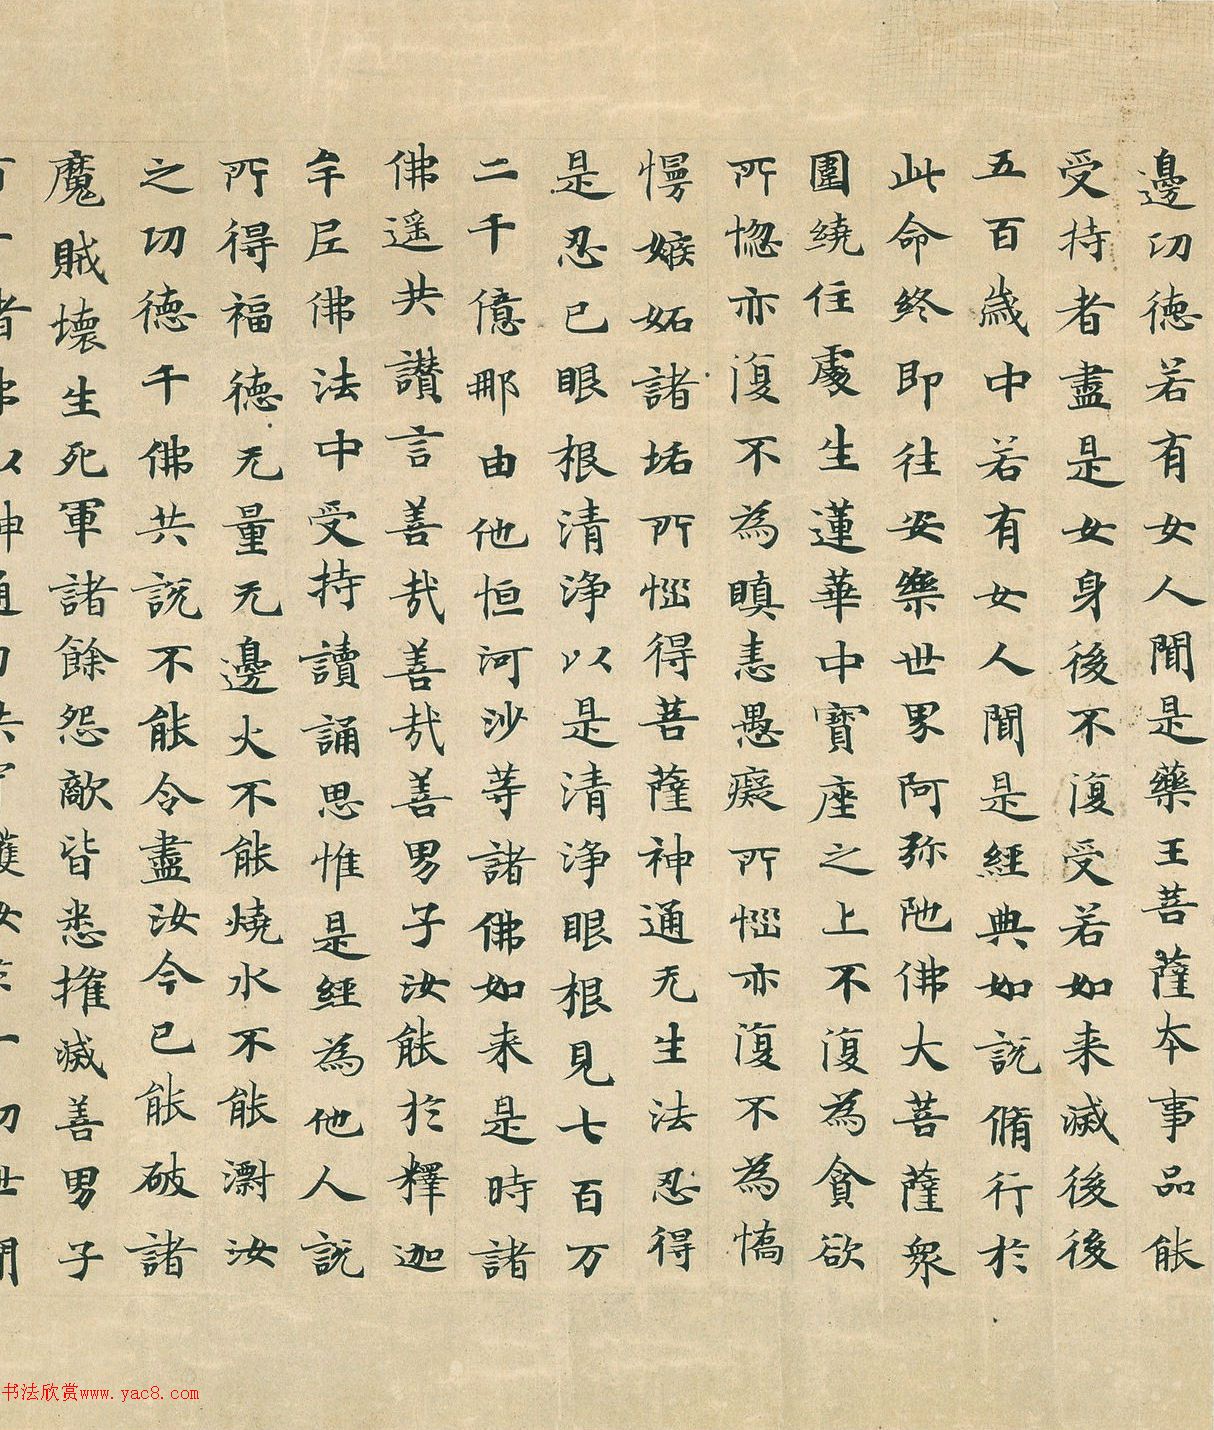 邊功德若有女人聞是藥王菩薩本事品能
受持者盡是女身後不復受若如来滅後後
五百歲中若有女人聞是經典如說脩行於
此命終即往安樂世界阿弥陁佛大菩薩衆
圍繞住處生蓮華中寶座之上不復為貪欲
所惚亦復不為瞋恚愚癡所惱亦復不為憍
慢嫉妬諸垢所惱得菩薩神通无生法忍得
是忍已眼根清淨以是清淨眼根見七百万
二千億那由他恒河沙等諸佛如来是時諸
佛遥共讃言善哉善哉善男子汝能於釋迦
牟尼佛法中受持讀誦思惟是經為他人說
所得福德无量无邊火不能燒水不能漂汝
之功德千佛共說不能令盡汝今已能破諸
魔賊壞生死軍諸餘怨敵皆悉摧滅善男子
百千諸佛以神通力共守護汝於一切世間
书法欣赏www.yac8.com